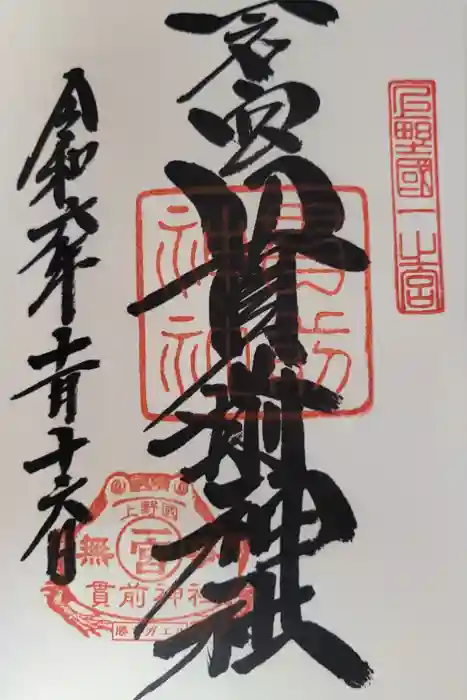 上野國一之宮
一之宮貫前神社
令和六年十一月十六日
上野國
一宮
無
貫前神社